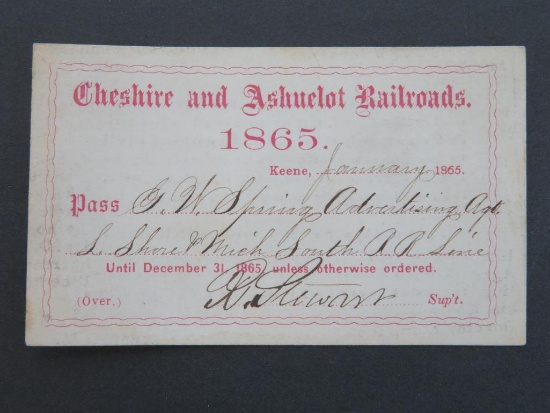 Cheshire and Ashuelot Railroads.
1865.
Keene, January 1865.
Pass G. W. Spring Advertising Agt.
L. Shore & Mich South R R Line
Until December 31, 1865, unless otherwise ordered.
(Over.) R. Stewart Sup't.